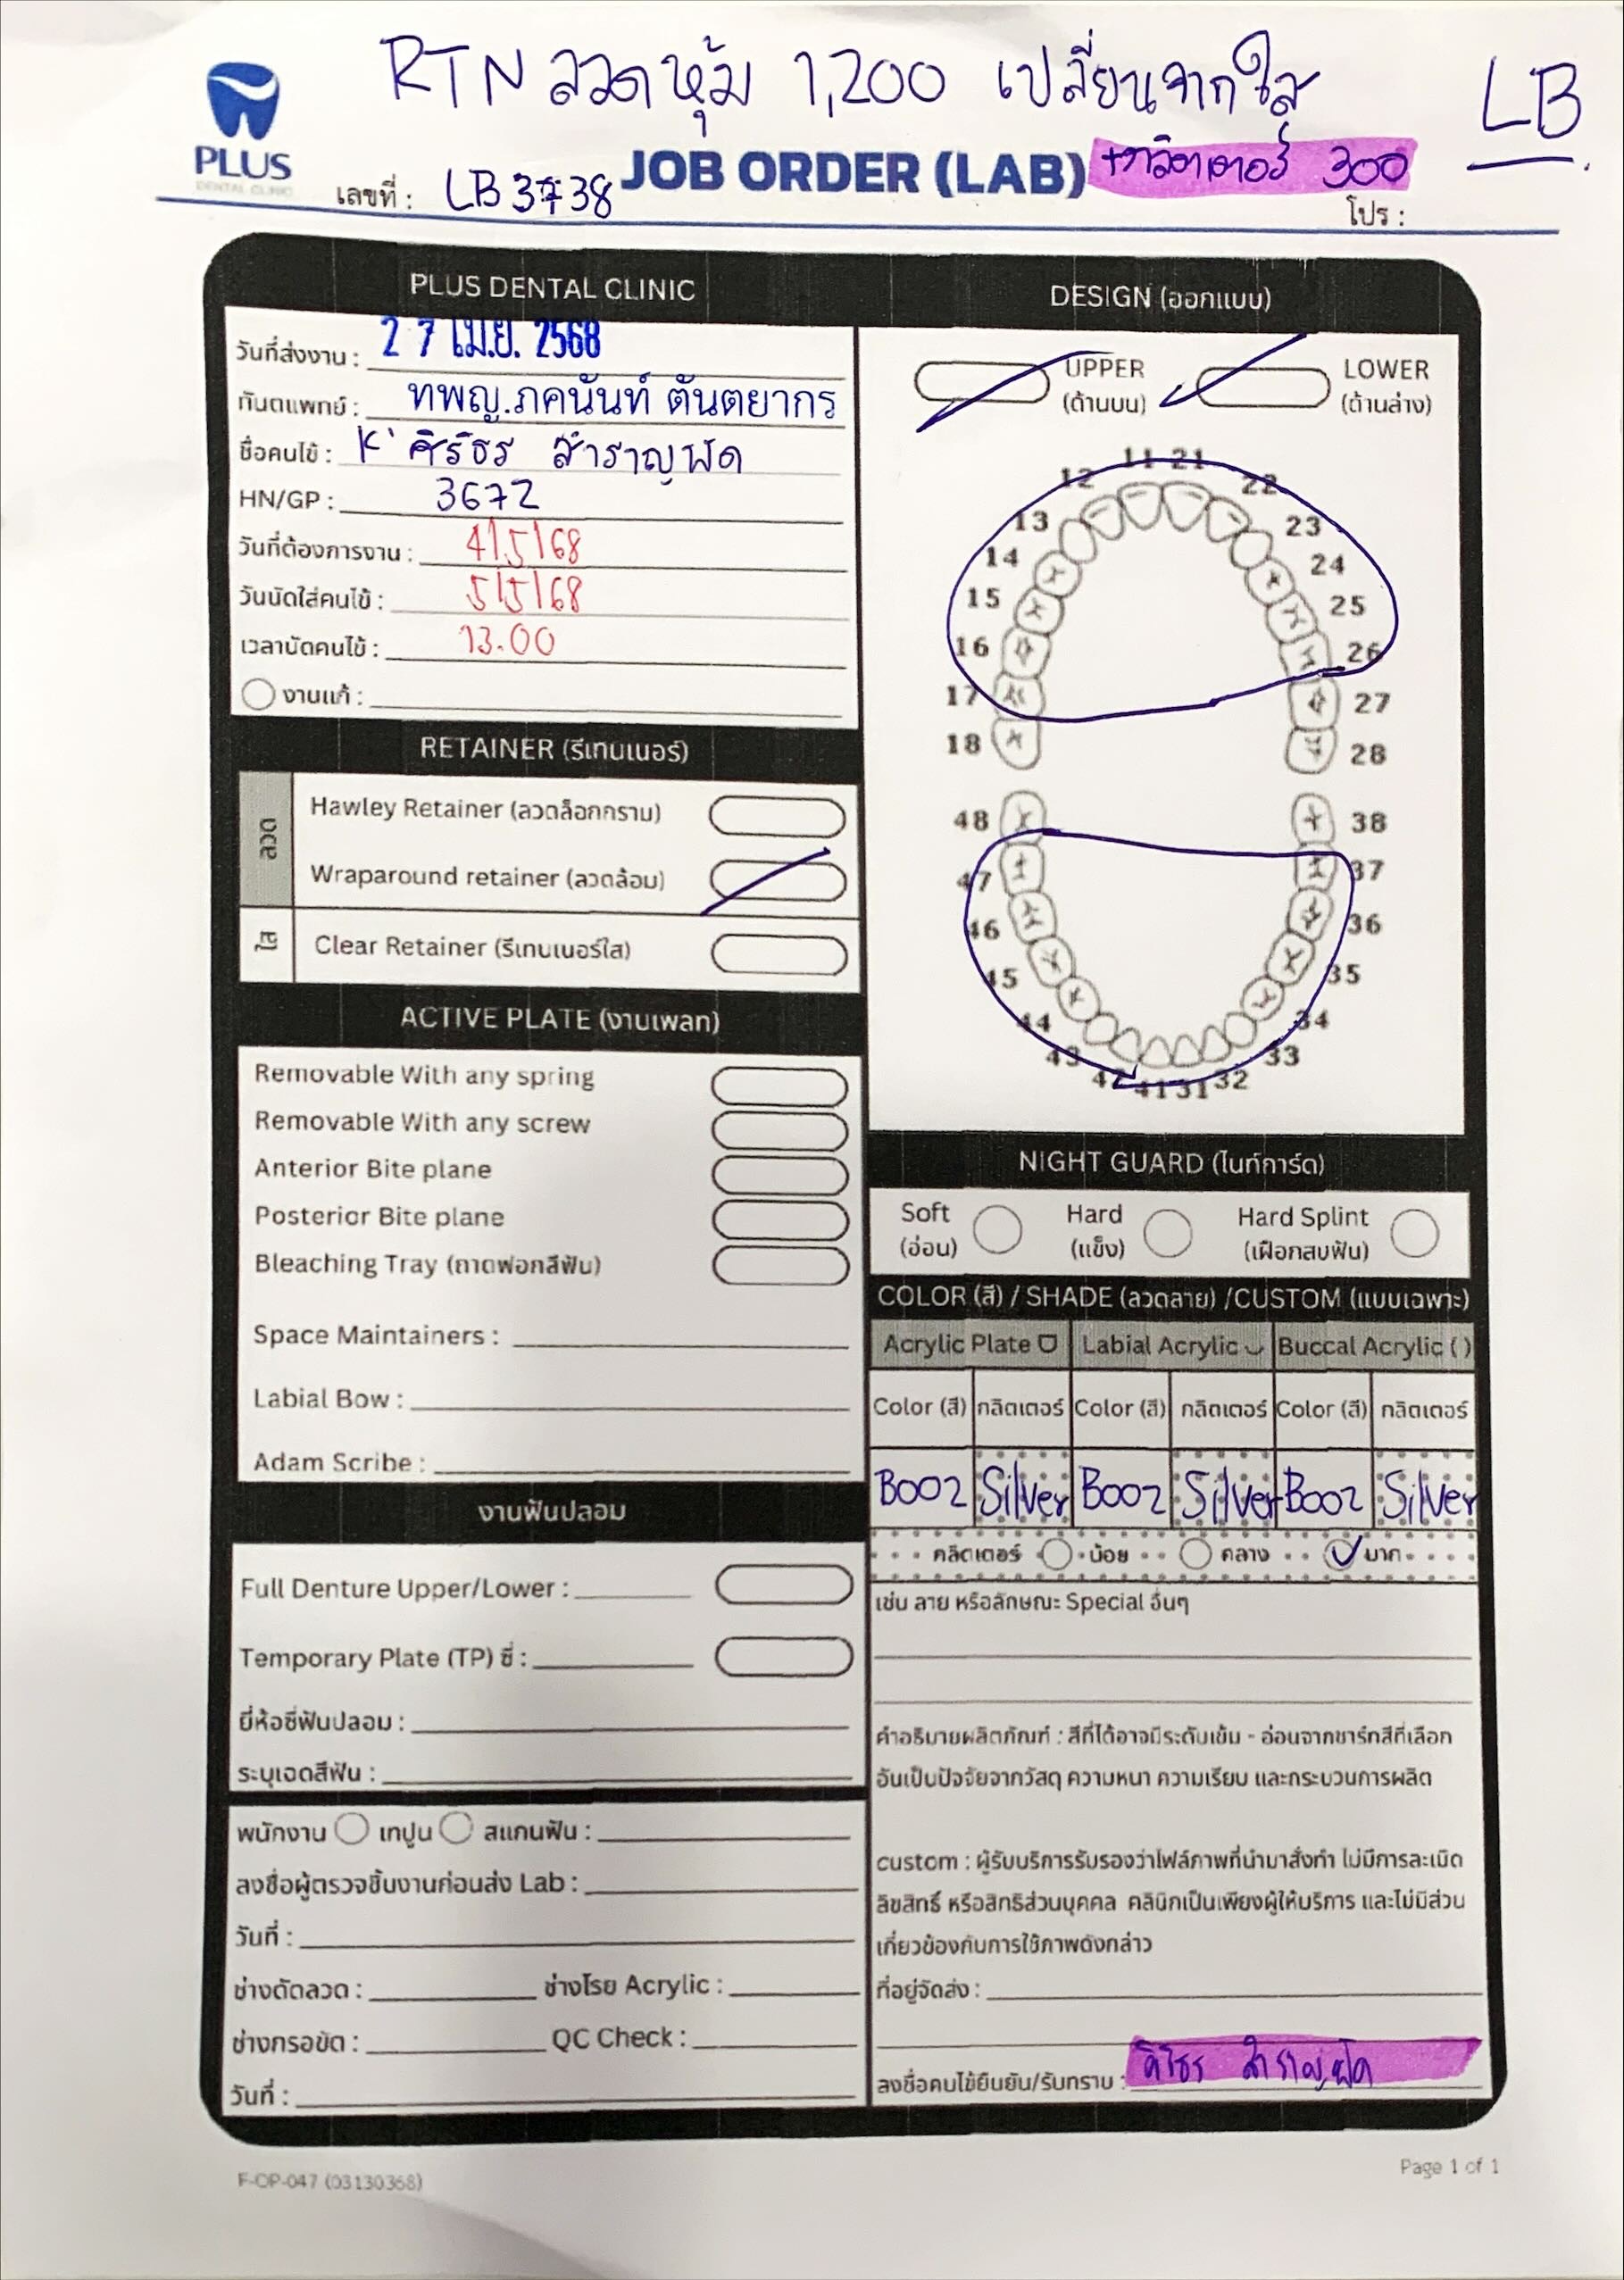 RTN ลวดหุ้ม 1,200 เปลี่ยนจากใส
LB
PLUS
DENTAL CLINIC
JOB ORDER (LAB)
+กลิตเตอร์ 300
เลขที่ : LB3738
โปร :
PLUS DENTAL CLINIC
วันที่ส่งงาน : 27 เม.ย. 2568
ทันตแพทย์ : ทพญ.ภคนันท์ ตันตยากร
ชื่อคนไข้ : K' ศิริธร สำราญพัด
HN/GP : 3672
วันที่ต้องการงาน : 4/5/68
วันนัดใส่คนไข้ : 5/5/68
เวลานัดคนไข้ : 13.00
งานแก้ :
RETAINER (รีเทนเนอร์)
ลวด
Hawley Retainer (ลวดล็อกกราม)
Wraparound retainer (ลวดล้อม)
ใส
Clear Retainer (รีเทนเนอร์ใส)
ACTIVE PLATE (งานเพลท)
Removable With any spring
Removable With any screw
Anterior Bite plane
Posterior Bite plane
Bleaching Tray (ถาดฟอกสีฟัน)
Space Maintainers :
Labial Bow :
Adam Scribe :
งานฟันปลอม
Full Denture Upper/Lower :
Temporary Plate (TP) ซี่ :
ยี่ห้อซี่ฟันปลอม :
ระบุเฉดสีฟัน :
พนักงาน เทปูน สแกนฟัน :
ลงชื่อผู้ตรวจชิ้นงานก่อนส่ง Lab :
วันที่ :
ช่างดัดลวด : ช่างโรย Acrylic :
ช่างกรอขัด : QC Check :
วันที่ :
DESIGN (ออกแบบ)
UPPER
(ด้านบน)
LOWER
(ด้านล่าง)
11 21
12 22
13 23
14 24
15 25
16 26
17 27
18 28
48 38
47 37
46 36
45 35
44 34
43 33
42 41 31 32
NIGHT GUARD (ไนท์การ์ด)
Soft
(อ่อน)
Hard
(แข็ง)
Hard Splint
(เฝือกสบฟัน)
COLOR (สี) / SHADE (ลวดลาย) /CUSTOM (แบบเฉพาะ)
Acrylic Plate Labial Acrylic Buccal Acrylic ( )
Color (สี) กลิตเตอร์ Color (สี) กลิตเตอร์ Color (สี) กลิตเตอร์
B002 Silver B002 Silver B002 Silver
กลิตเตอร์ น้อย กลาง มาก
เช่น ลาย หรือลักษณะ Special อื่นๆ
คำอธิบายผลิตภัณฑ์ : สีที่ได้อาจมีระดับเข้ม - อ่อนจากชาร์ทสีที่เลือก
อันเป็นปัจจัยจากวัสดุ ความหนา ความเรียบ และกระบวนการผลิต
custom : ผู้รับบริการรับรองว่าไฟล์ภาพที่นำมาสั่งทำ ไม่มีการละเมิด
ลิขสิทธิ์ หรือสิทธิส่วนบุคคล คลินิกเป็นเพียงผู้ให้บริการ และไม่มีส่วน
เกี่ยวข้องกับการใช้ภาพดังกล่าว
ที่อยู่จัดส่ง :
ลงชื่อคนไข้ยืนยัน/รับทราบ : ศิริธร สำราญพัด
F-OP-047 (03130368)
Page 1 of 1